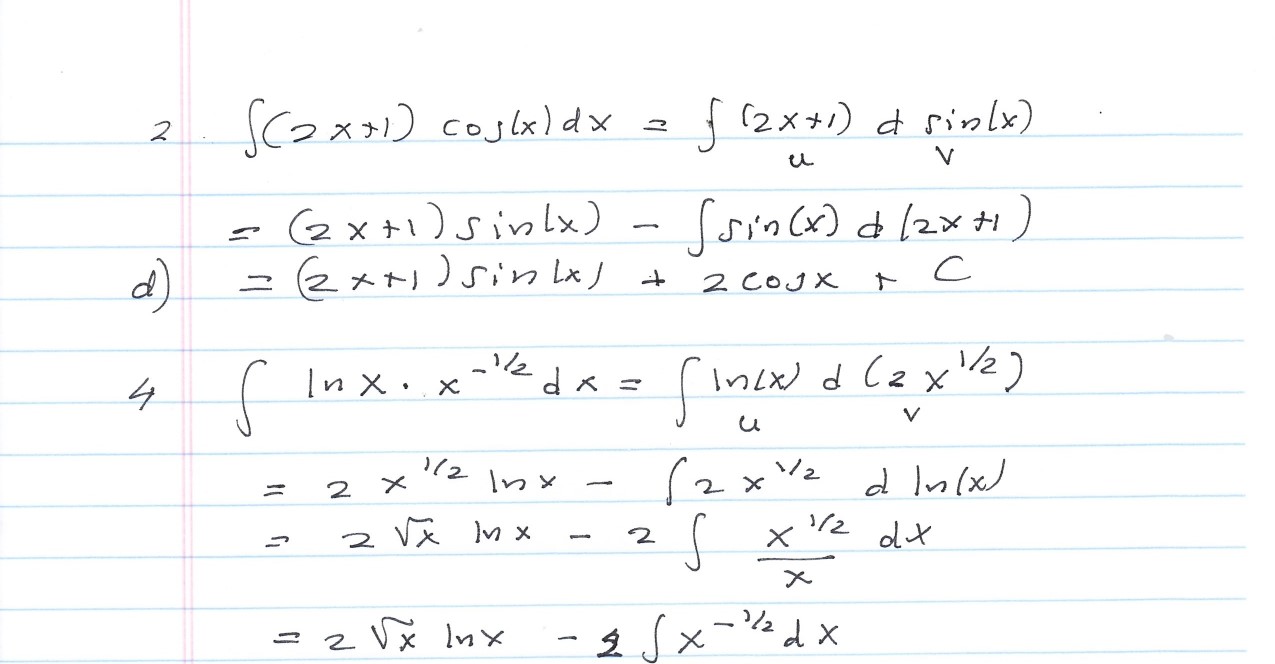 2. ∫(2x+1) cos(x) dx = ∫ (2x+1) d sin(x)
u v
= (2x+1) sin(x) - ∫ sin(x) d(2x+1)
d) = (2x+1) sin(x) + 2 cosx + C
4 ∫ ln x · x^{-1/2} dx = ∫ ln(x) d (2 x^{1/2})
u v
= 2 x^{1/2} ln x - ∫ 2 x^{1/2} d ln(x)
= 2 √x ln x - 2 ∫ x^{1/2}/x dx
= 2 √x ln x - 2 ∫ x^{-1/2} dx